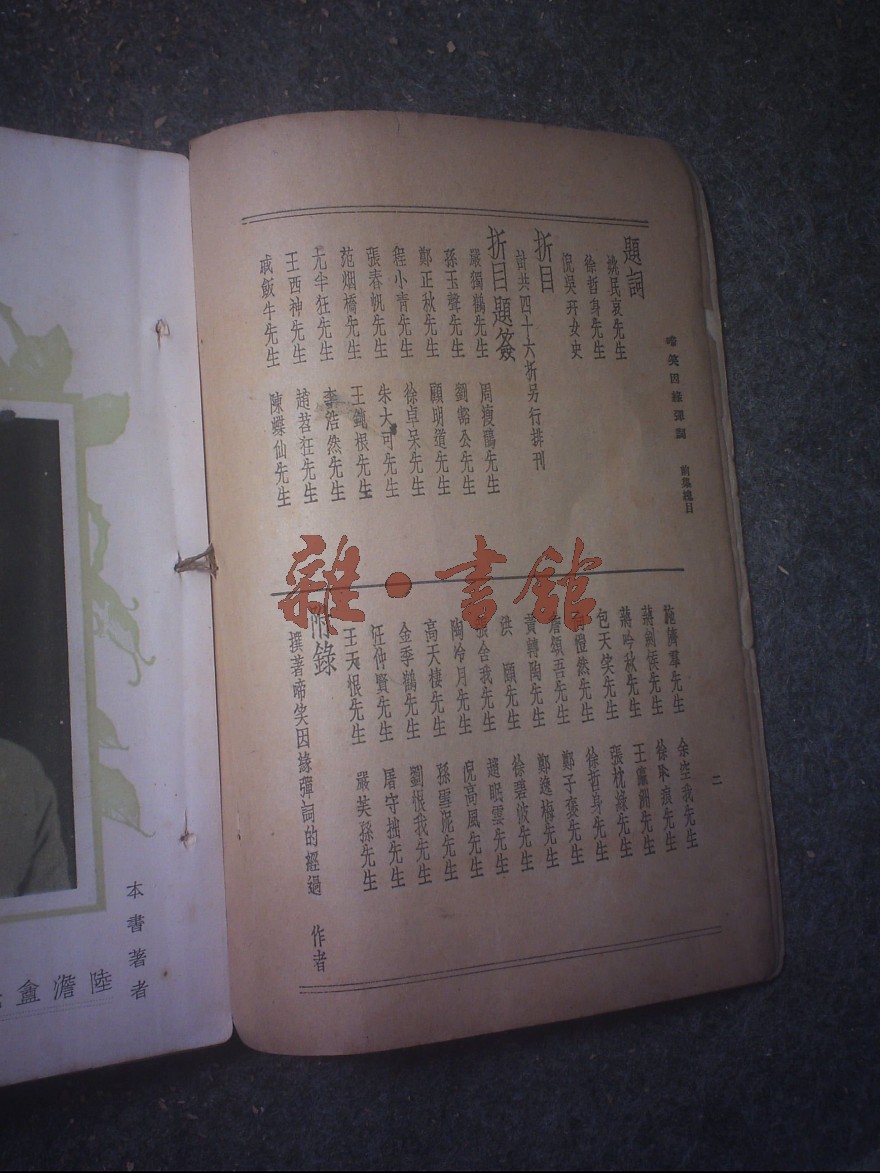 啼笑因緣彈詞 前集總目
二
題詞
姚民哀先生
徐哲身先生
倪吳㺵女史
折目
計共四十六折另行排刊
折目題簽
嚴獨鶴先生 周瘦鵑先生
孫玉聲先生 劉豁公先生
鄭正秋先生 顧明道先生
程小青先生 徐卓呆先生
張春帆先生 朱大可先生
范烟橋先生 王鈍根先生
尢半狂先生 李浩然先生
王西神先生 趙苕狂先生
戚飯牛先生 陳蝶仙先生
施濟羣先生 余空我先生
蔣劍侯先生 徐耻痕先生
蔣吟秋先生 王瀛洲先生
包天笑先生 張枕綠先生
愷然先生 徐哲身先生
唐頌吾先生 鄭子褒先生
黃轉陶先生 鄭逸梅先生
洪 頤先生 徐碧波先生
張舍我先生 趙眠雲先生
陶冷月先生 倪高風先生
高天棲先生 孫雪泥先生
金季鶴先生 劉恨我先生
汪仲賢先生 屠守拙先生
王天恨先生 嚴芙孫先生
附錄
撰著啼笑因緣彈詞的經過 作者
本書著者
陸澹盦
雜·書館